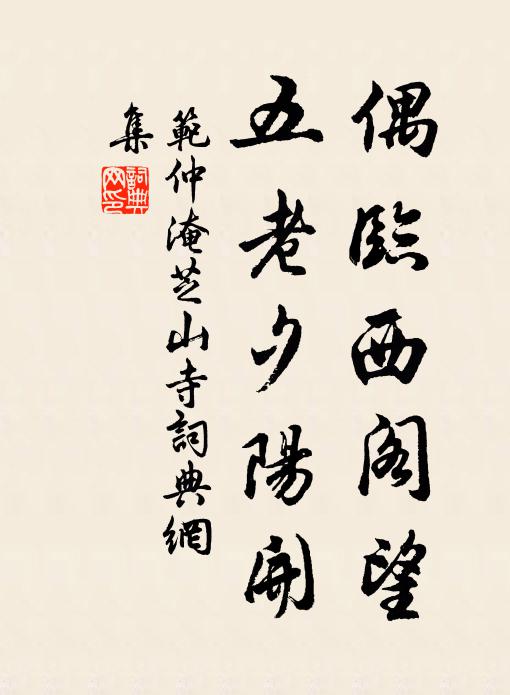 偶臨西阁望
五老夕陽開
範仲淹芝山寺詞典網
集
詞典
网印